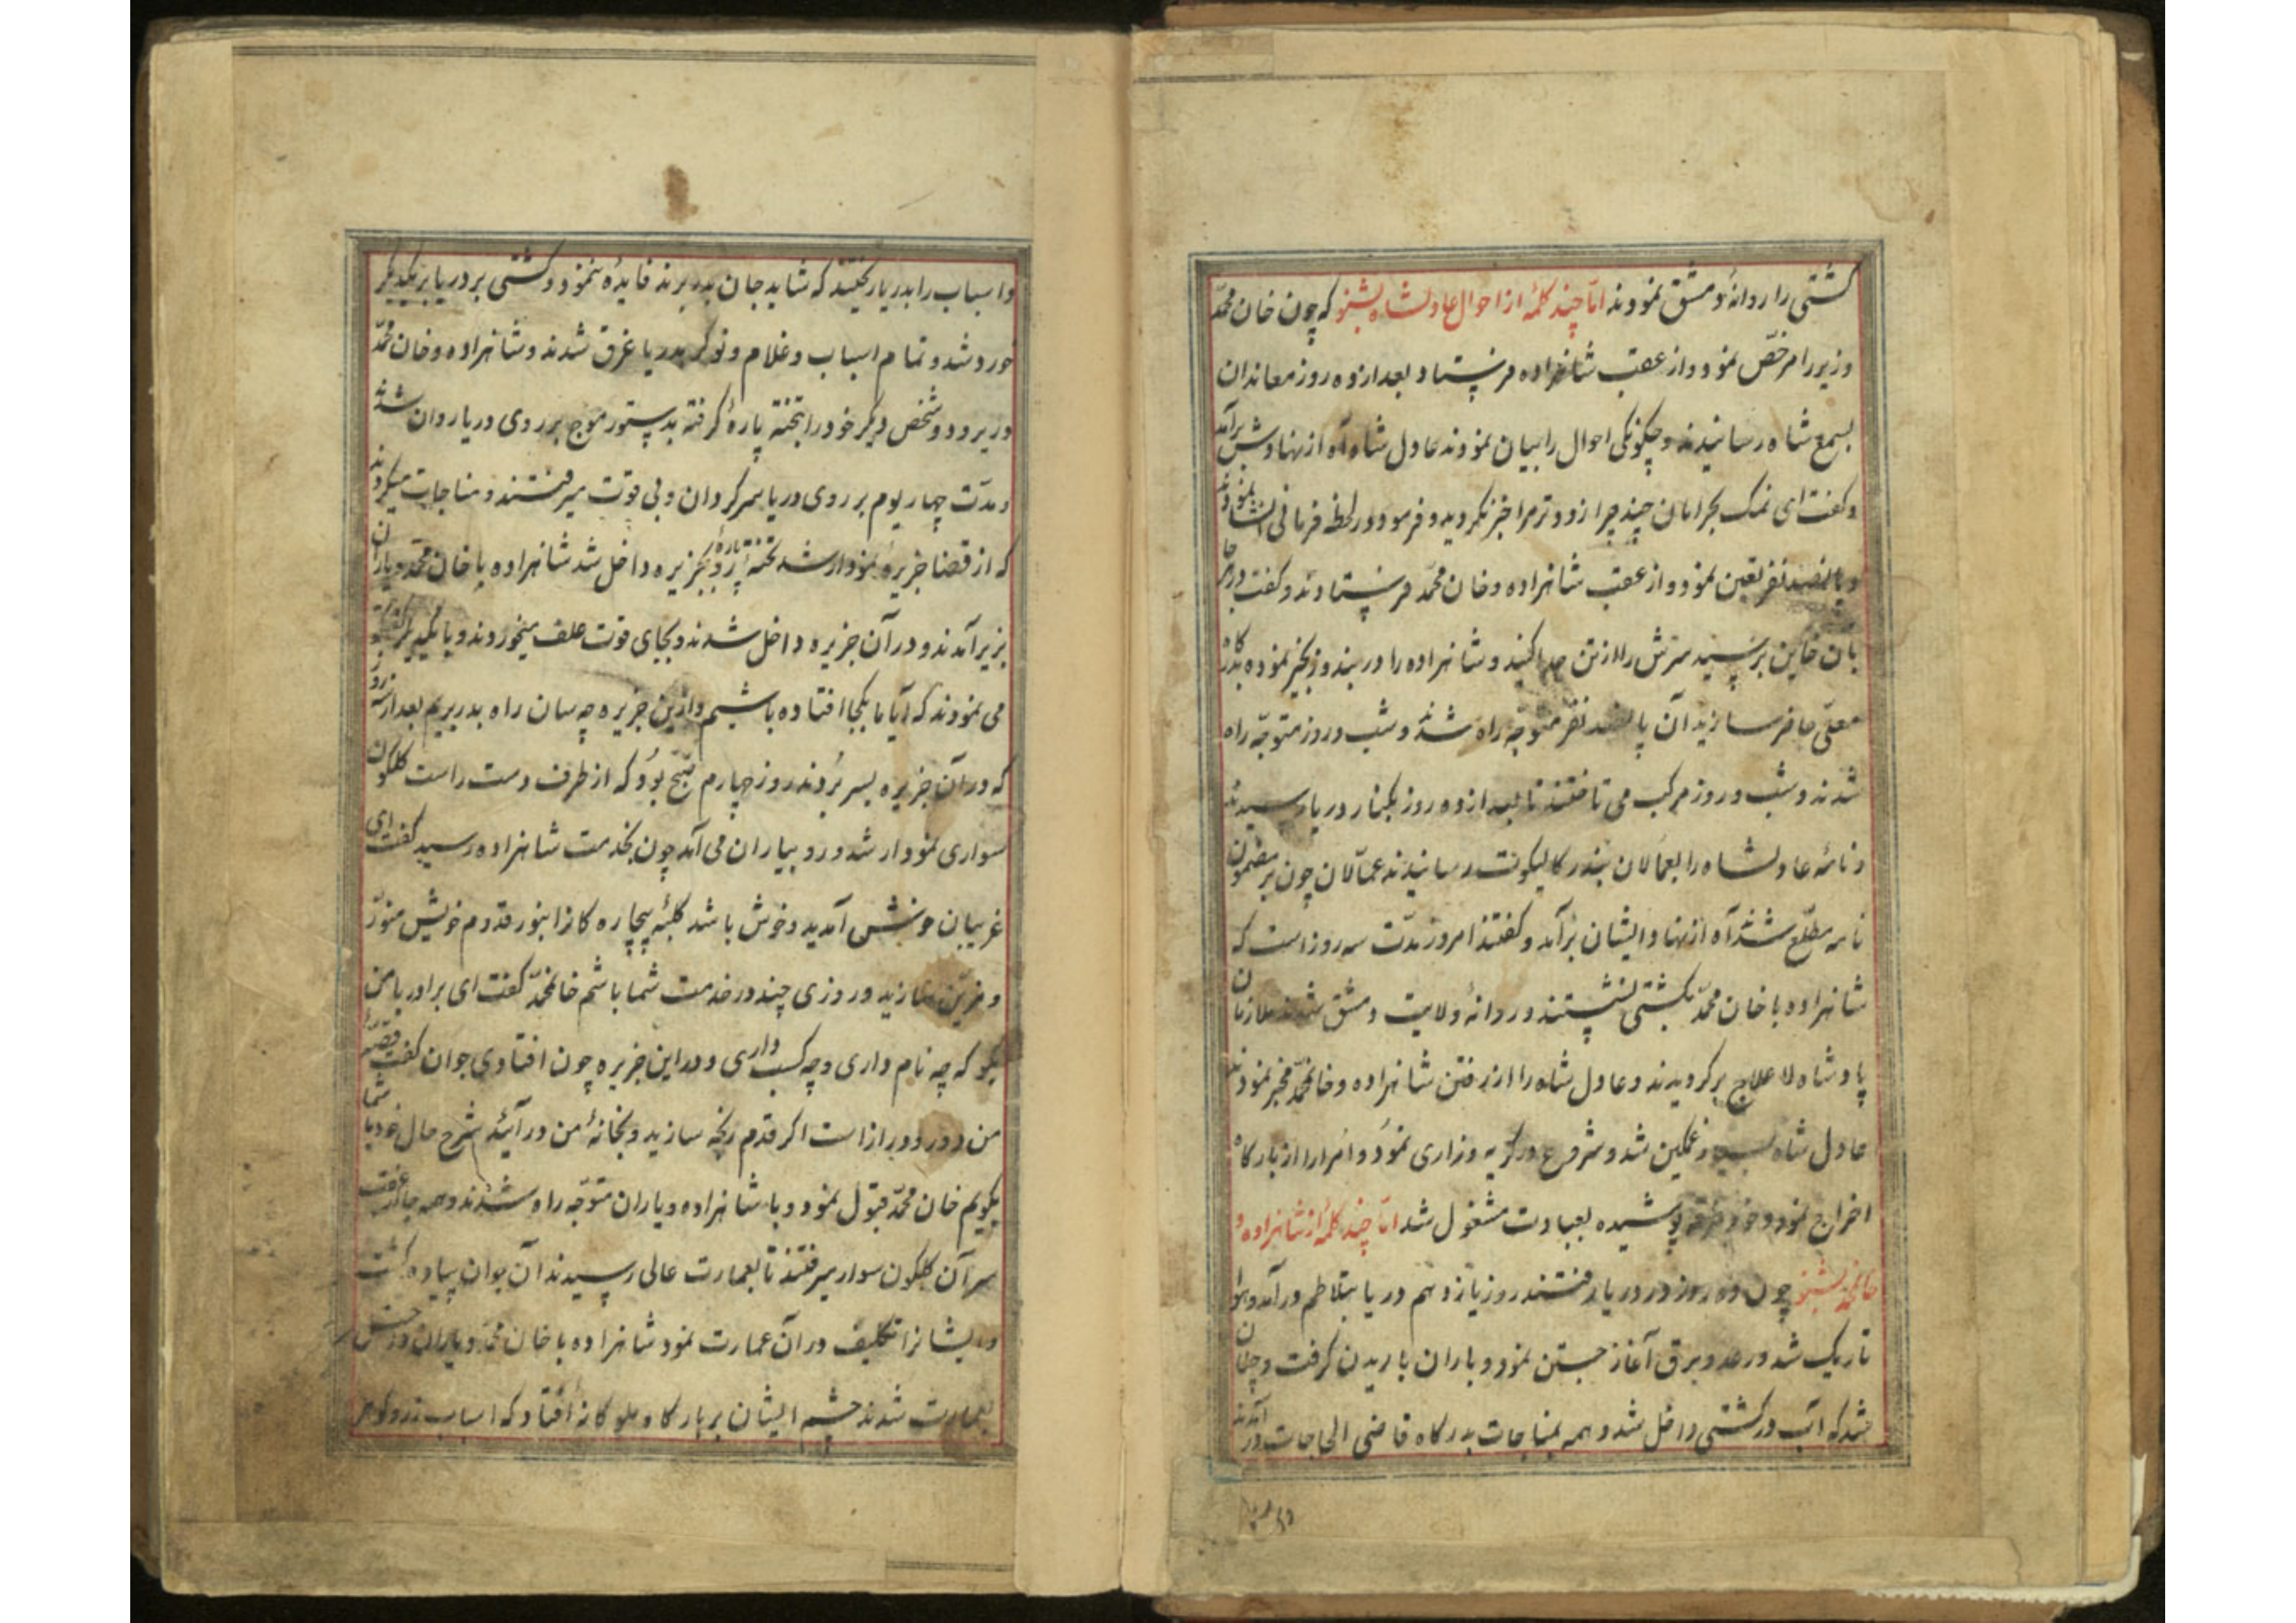 کشتی را روانهٔ دمشق نمودند اما چند کلمه از احوال عادلشاه بشنو که چون خان محمد
وزیر را مرخص نمود و از عقب شاهزاده فرستاد بعد از ده روز معاندان
بسمع شاه رسانیدند و چکونکی احوال را بیان نمودند عادل شاه آه از نهادش برآمد
و کفت ای نمک بحرامان چند چرا زودتر مرا خبر نکردید و فرمود در لحظه فرمانی انشا نمودند
و پانصد نفر تعین نمود و از عقب شاهزاده و خان محمد فرستادند و کفت در هر جا
بان خاین برسید سرش را از تن جدا کنید و شاهزاده را در بند و زنجیر نموده بدرکاه
معلی حاضر سازید آن پانصد نفر متوجه راه شدند و شب و روز متوجه راه
شدند و شب و روز مرکب می تاختند تا بعد از ده روز بکنار دریا رسیدند
و نامه عادلشاه را بعمالان بندر کالیکوت رسانیدند عمالان چون بر مضمون
نامه مطلع شدند آه از نهاد ایشان برآمد و کفتند امروز مدت سه روز است که
شاهزاده با خان محمد بکشتی نشستند و روانهٔ ولایت دمشق شدند ملازمان
پادشاه لا علاج برکردیدند و عادل شاه را از رفتن شاهزاده و خانمحمد مخبر نمودند
عادل شاه بسیار غمکین شد و شروع در کریه و زاری نمود و امرا را از بارکاه
اخراج نمود و خود خرقه پوشیده بعبادت مشغول شد اما چند کلمه از شاهزاده و
خانمحمد بشنو چون ده روز در دریا رفتند روز یازدهم دریا بتلاطم درآمد و هوا
تاریک شد و رعد و برق آغاز جستن نمود و باران باریدن کرفت و چنان
شد که آب در کشتی داخل شد و همه بمناجات بدرکاه قاضی الحاجات درآمدند
و اسباب را بدریا ریختند که شاید جان بدر برند فایدهٔ ننمود و کشتی بر دریا بر یکدیکر
خورد شد و تمام اسباب و غلام و نوکر بدریا غرق شدند و شاهزاده و خان محمد
وزیر و دو شخص دیکر خود را بتخته پارهٔ کرفته بدستور موج بر روی دریا روان شدند
و مدت چهار یوم بر روی دریا سرکردان و بی قوت میرفتند و مناجات میکردند
که از قضا جزیرهٔ نمودار شد تخته پاره بجزیره داخل شد شاهزاده با خان محمد و یاران
بزیر آمدند و در آن جزیره داخل شدند و بجای قوت علف میخوردند و با یکدیکر
می نمودند که آیا ما بکجا افتاده باشیم و ازین جزیره چه سان راه بدر بریم بعد از سه روز
که در آن جزیره بسر بردند روز چهارم صبح بود که از طرف دست راست کلکون
سواری نمودار شد و رو بیاران می آمد چون بخدمت شاهزاده رسید کفت ای
غریبان خوش آمدید و خوش باشد کلبهٔ بیچاره کانرا بنور قدوم خویش منور
و مزین سازید و روزی چند در خدمت شما باشم خانمحمد کفت ای برادر با من
بکو که چه نام داری و چه کسب داری و در این جزیره چون افتادی جوان کفت قصهٔ
من دور و دراز است اکر قدم رنجه سازید و بخانهٔ من درآئید شرح حال خود با شما
بکویم خان محمد قبول نمود و با شاهزاده و یاران متوجه راه شدند و همه جا از عقب
سر آن کلکون سوار میرفتند تا بعمارت عالی رسیدند آن جوان پیاده کشت
و ایشانرا تکلیف در آن عمارت نمود شاهزاده با خان محمد و یاران
بعمارت شدند چشم ایشان بر بارکاه ملوکانهٔ افتاد که اسباب زر و کوهر